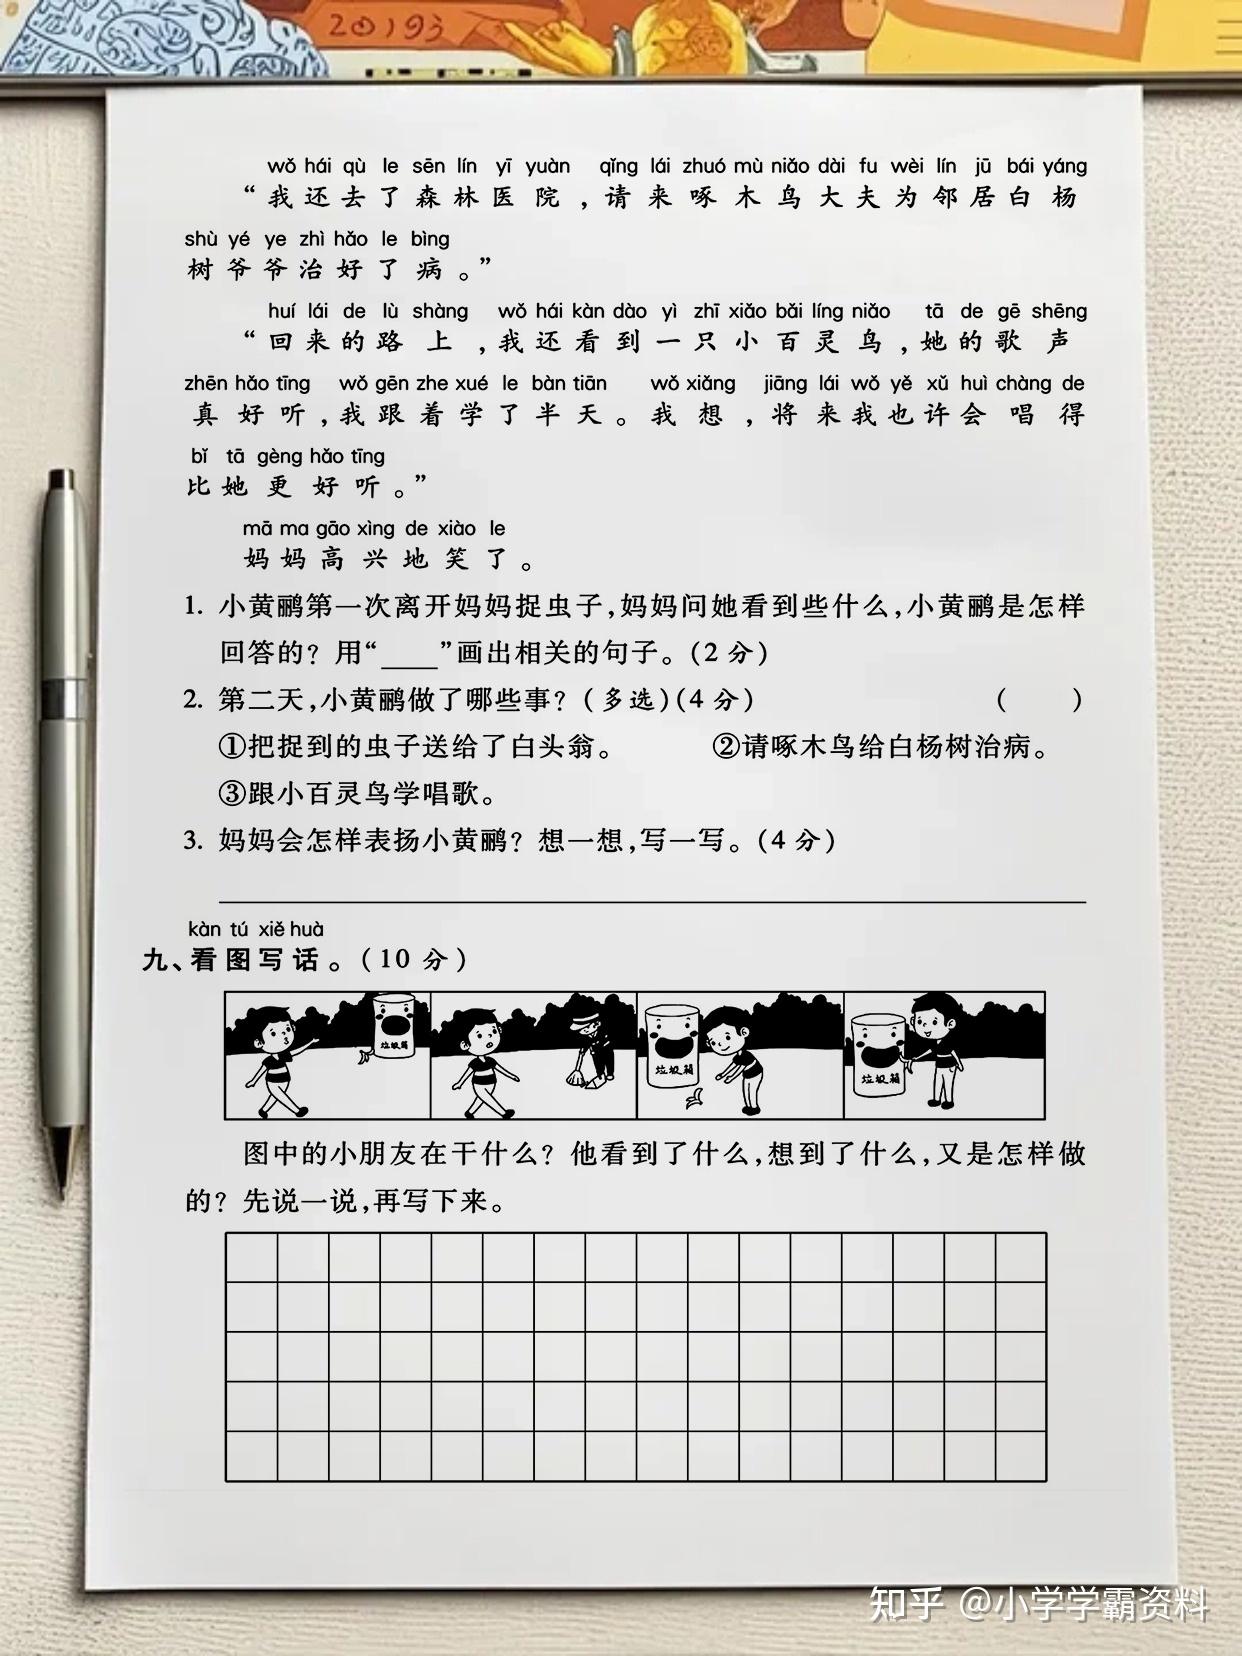 20193
wǒ hái qù le sēn lín yī yuàn qǐng lái zhuó mù niǎo dài fu wèi lín jū bái yáng
“我还去了森林医院,请来啄木鸟大夫为邻居白杨
shù yé ye zhì hǎo le bìng
树爷爷治好了病。”
huí lái de lù shàng wǒ hái kàn dào yì zhī xiǎo bǎi líng niǎo tā de gē shēng
“回来的路上,我还看到一只小百灵鸟,她的歌声
zhēn hǎo tīng wǒ gēn zhe xué le bàn tiān wǒ xiǎng jiāng lái wǒ yě xǔ huì chàng de
真好听,我跟着学了半天。我想,将来我也许会唱得
bǐ tā gèng hǎo tīng
比她更好听。”
mā ma gāo xìng de xiào le
妈妈高兴地笑了。
1. 小黄鹂第一次离开妈妈捉虫子,妈妈问她看到些什么,小黄鹂是怎样
回答的?用“____”画出相关的句子。(2 分)
2. 第二天,小黄鹂做了哪些事?(多选)(4 分) ( )
①把捉到的虫子送给了白头翁。 ②请啄木鸟给白杨树治病。
③跟小百灵鸟学唱歌。
3. 妈妈会怎样表扬小黄鹂?想一想,写一写。(4 分)
kàn tú xiě huà
九、看图写话。(10 分)
垃圾箱
垃圾箱
垃圾箱
图中的小朋友在干什么?他看到了什么,想到了什么,又是怎样做
的?先说一说,再写下来。
知乎 @小学学霸资料